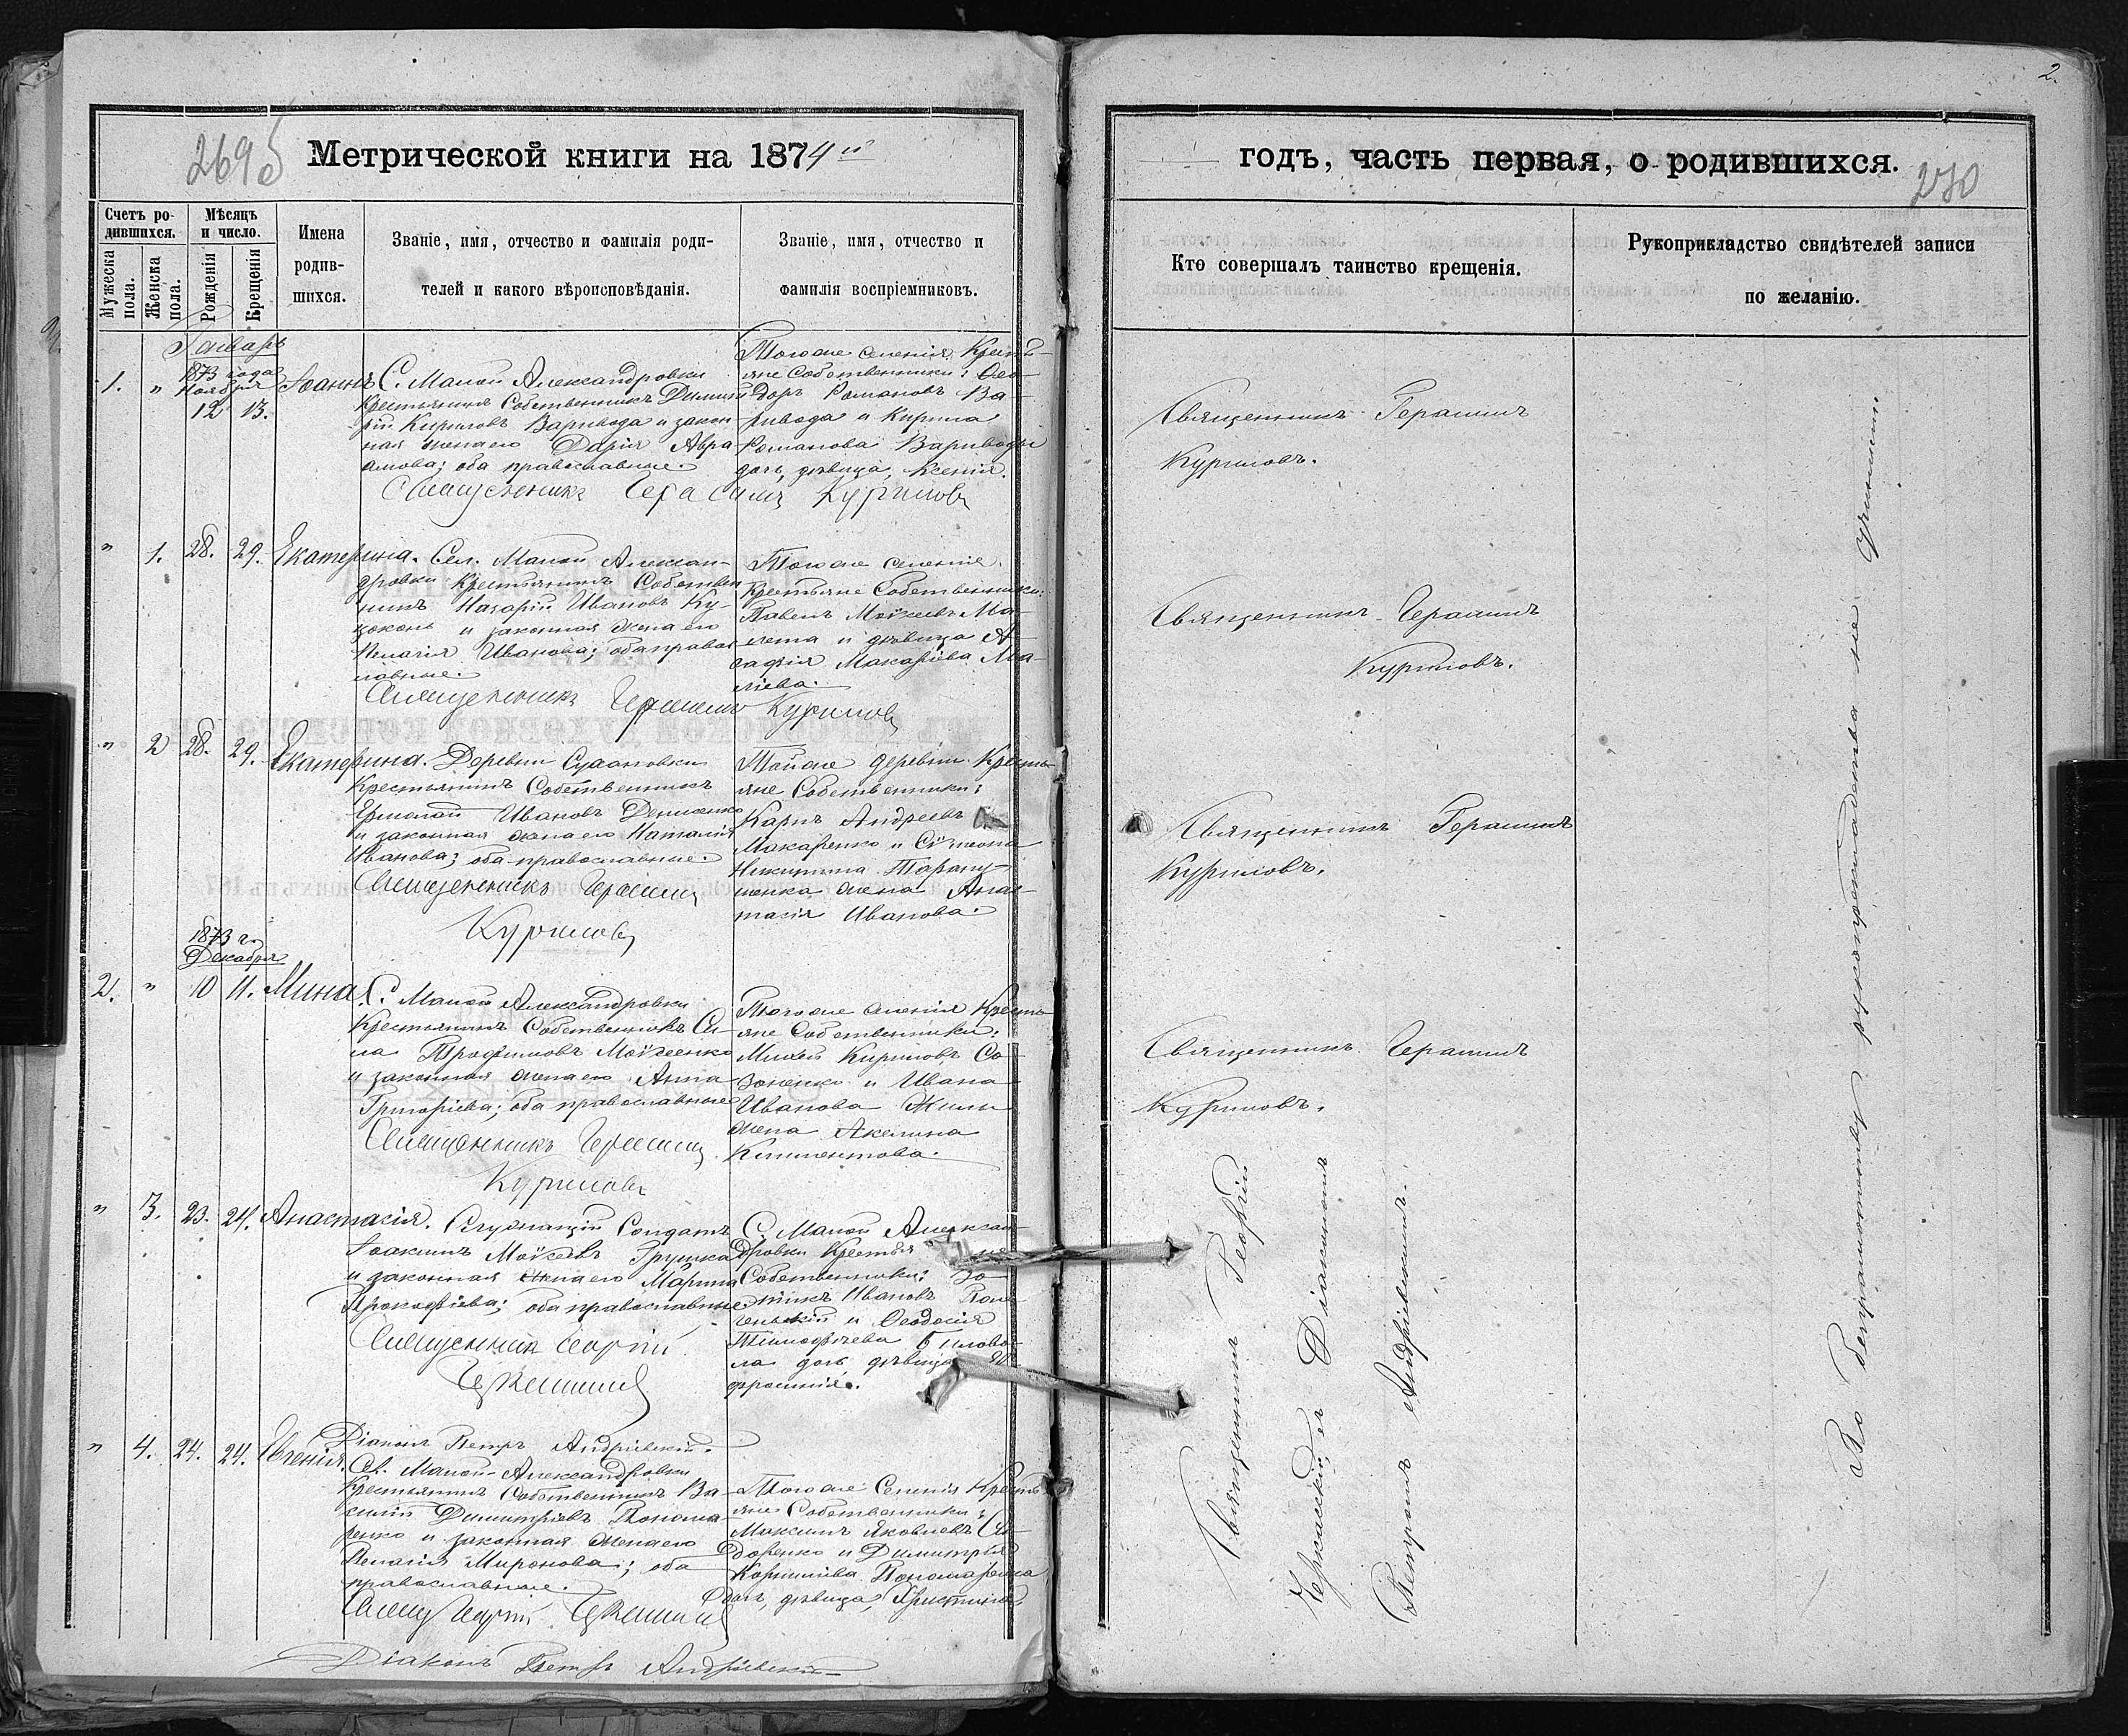 2.
269б
Метрической книги на 1874й
годъ, часть первая, о родившихся.
270
Счетъ родившихся.
Мужеска пола.
Женска пола.
Мѣсяцъ и число.
Рожденія
Крещенія
Имена родившихся.
Званіе, имя, отчество и фамилія родителей и какого вѣроисповѣданія.
Званіе, имя, отчество и фамилія воспріемниковъ.
Кто совершалъ таинство крещенія.
Рукоприкладство свидѣтелей записи по желанію.
Январь
1873 года
Ноября
1. " 12 13. Іоаннъ
С. Малой Александровки
Крестьянинъ Собственникъ Димит
рій Кириловъ Варивода и закон
ная жена его Дарія Авра
амова; оба православные.
Священникъ Герасимъ Куриловъ
Тогоже селенія Кресть-
яне Собственники: Ѳео-
доръ Романовъ Ва-
ривода и Кирила
Романова Вариводы
дочь, дѣвица, Ксенія.
Священникъ Герасимъ
Куриловъ.
" 1. 28. 29. Екатерина.
Сел. Малой Алексан-
дровки Крестьянинъ Собствен
никъ Назарій Ивановъ Ку-
цоконь и законная жена его
Пелагія Иванова; оба правос
лавные.
Священникъ Герасимъ Куриловъ
Тогоже селенія
Крестьяне Собственники:
Павелъ Моѷсеевъ Ма-
и дѣвица А-
гафія Макаріева
Священникъ Герасимъ
Куриловъ.
" 2 28. 29. Екатерина.
Деревни Сухановки
Крестьянинъ Собственникъ
Ермолай Ивановъ Денисенко
и законная жена его Наталія
Иванова; оба православные.
Священникъ Герасимъ
Куриловъ
Тойже деревни Кресть-
яне Собственники:
Карпъ Андреевъ
Макаренко и Сѷмеона
Никитина Таращ-
енка жена Анас
тасія Иванова.
Священникъ Герасимъ
Куриловъ.
1873 г.
Декабря
2. " 10 11. Мина
С. Малой Александровки
Крестьянинъ Собственникъ Си-
ла Трофимовъ Моѷсеенко
и законная жена его Анна
Григоріева; оба православные
Священникъ Герасимъ
Куриловъ
Тогоже селенія Кресть
яне Собственники.
Михей Кириловъ Со-
зоненко и Ивана
Иванова
жена Акилина
Климентова.
Священникъ Герасимъ
Куриловъ.
" 3. 23. 24. Анастасія.
Солдатъ
Іоакимъ Моѷсеевъ Грушка
и законная жена его Марина
Прокофіева; оба православные.
Священникъ Георгій
Черкасскій
С. Малой Алексан-
дровки Крестьяне
Собственники: Зо-
тикъ Ивановъ
и Ѳеодосія
Тимофѣева Билово-
ла дочь дѣвица Ев-
фросинія.
Діаконъ Петръ Андріевскій.
" 4. 24. 24. Евгенія.
Сел. Малой-Александровки
Крестьянинъ Собственникъ Ва-
силій Димитріевъ Понома-
ренко и законная жена его
Пелагія Миронова; оба
православные.
Свящ Георгій Черкасскій
Тогоже Селенія Кресть
яне Собственники;
Максимъ Яковлевъ Си-
доренко и Димитрія
Корниліева Пономаренка
дочь, дѣвица, Христина.
Діаконъ Петръ Андріевскій
Священникъ Георгій
Черкасскій съ Діакономъ
Петромъ Андріевскимъ.
По безграмотству рукоприкладства не учинили.